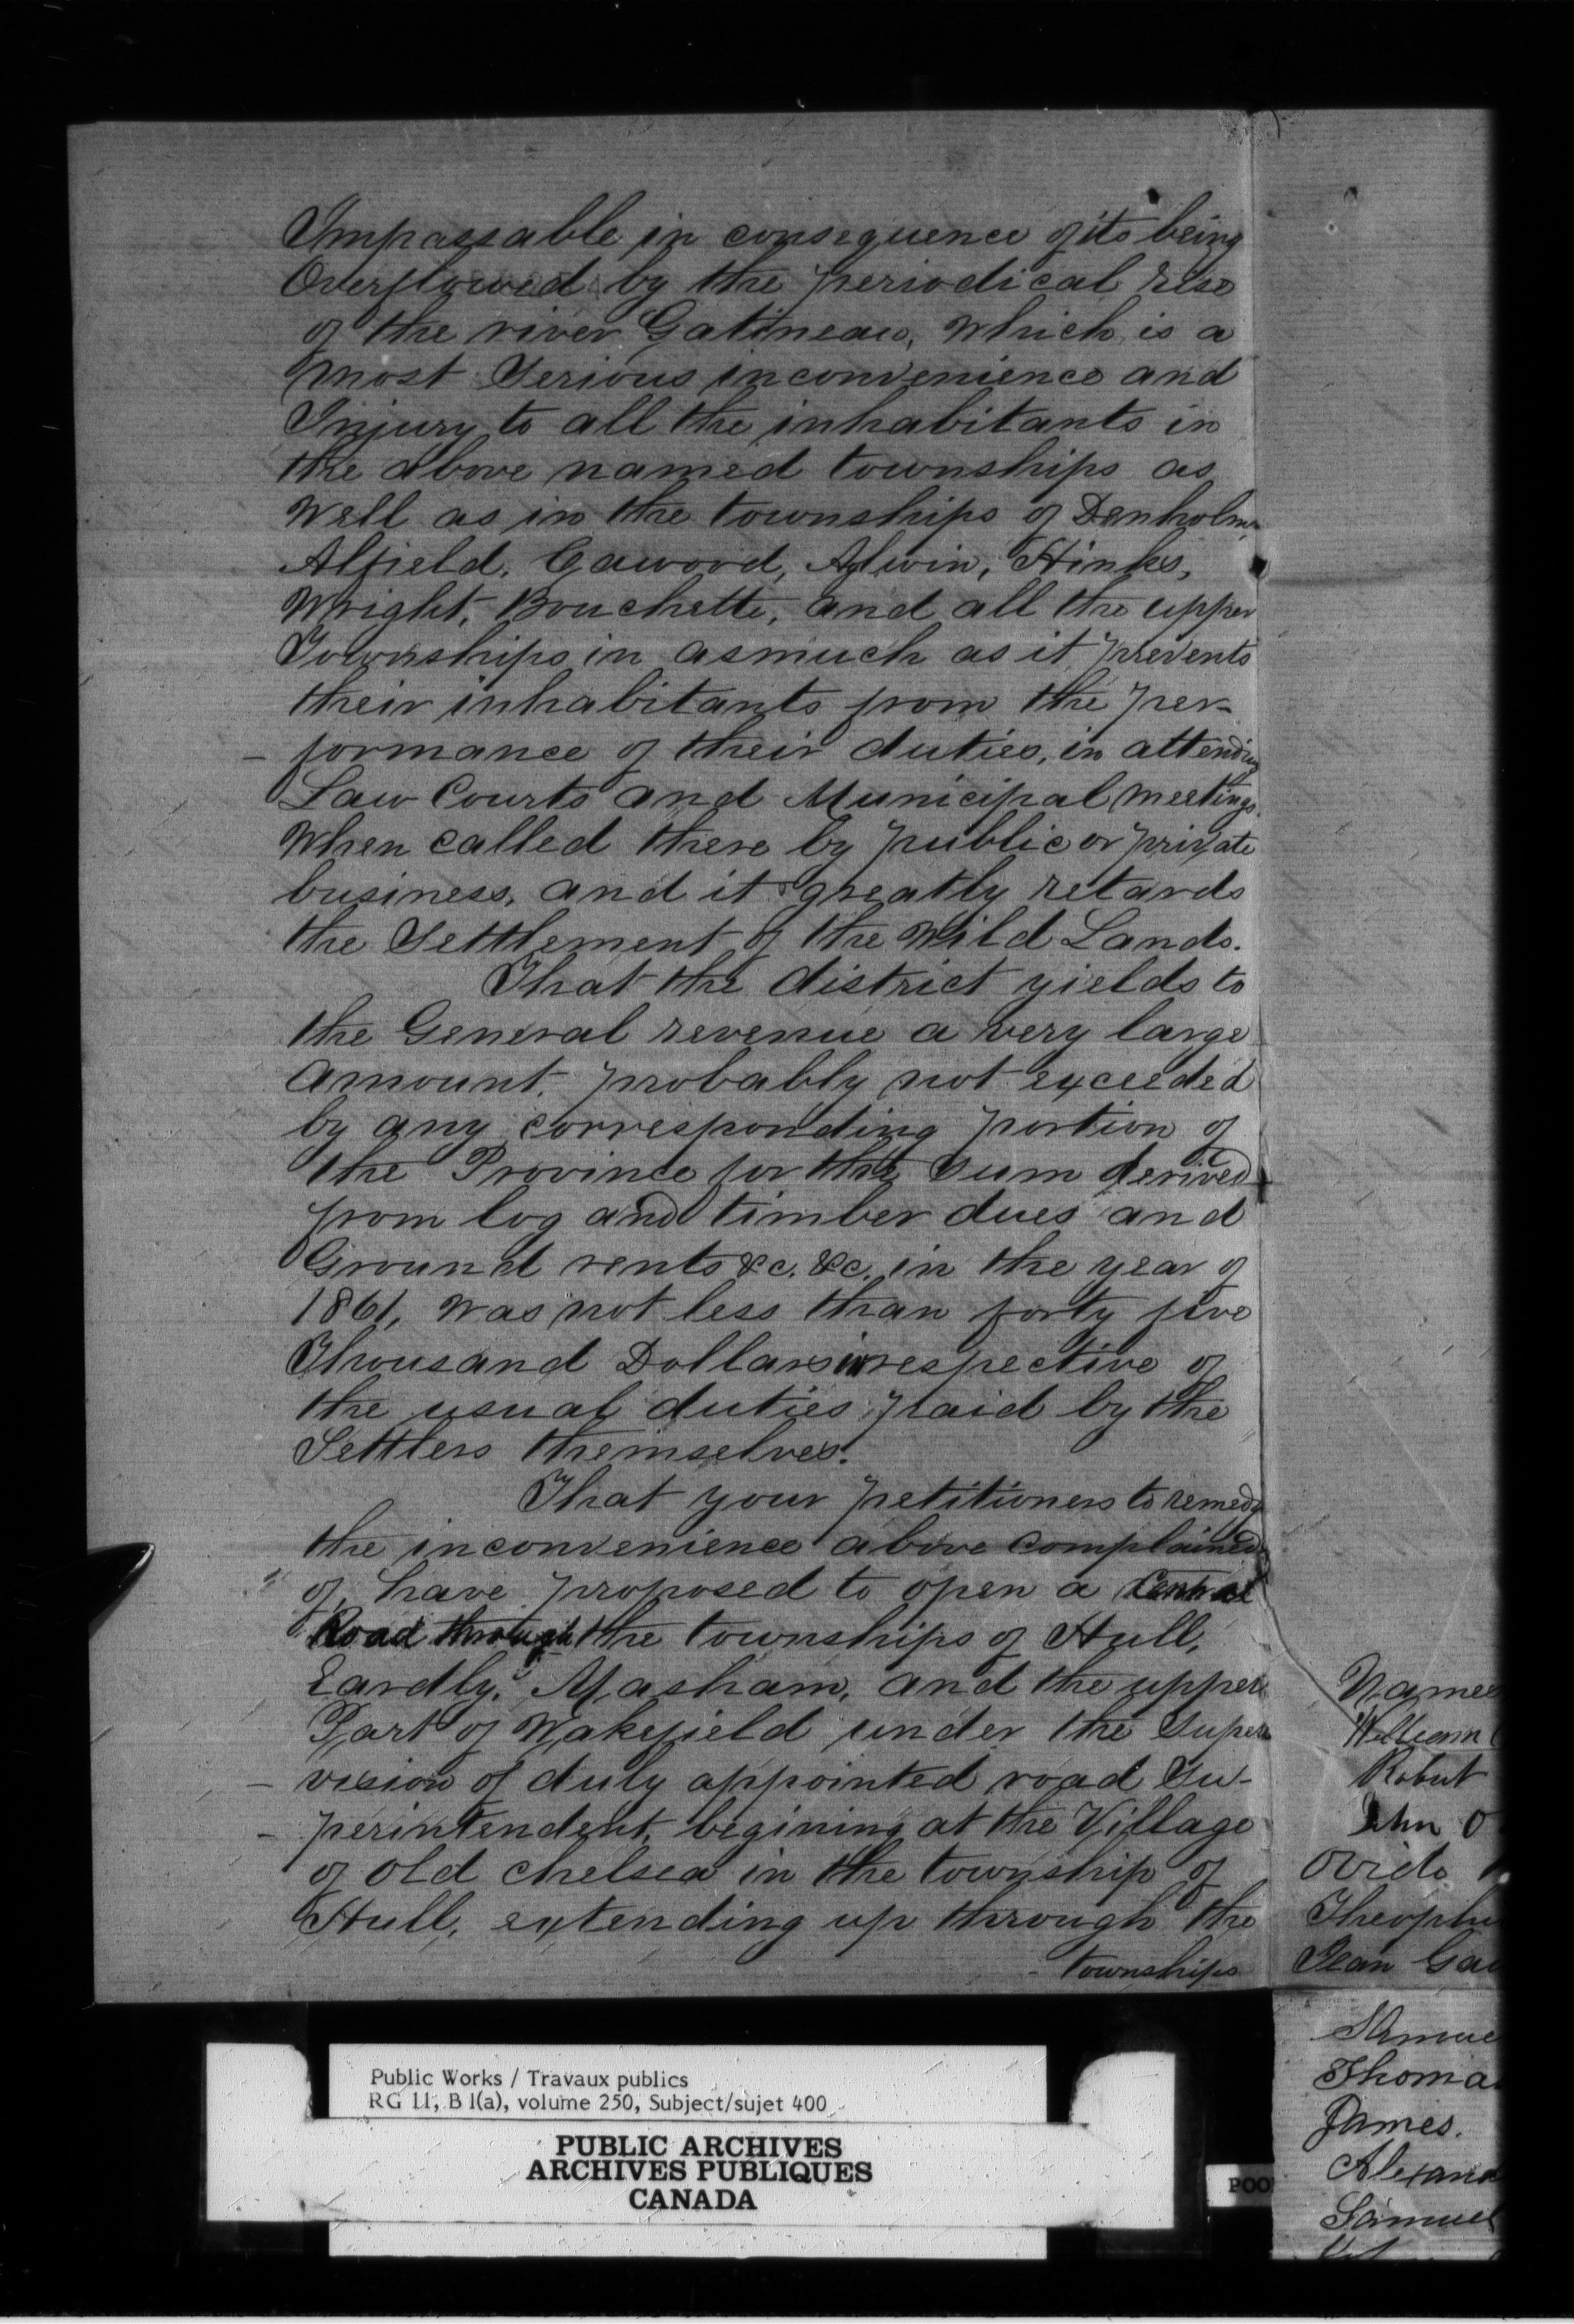 Impassable in consequence of its being
Overflowed by the periodical rise
of the river Gatineau, which is a
most Serious inconvenience and
Injury to all the inhabitants in
the above named townships as
Well as in the townships of Denholm,
Alfield, Cawood, Aylwin, Hinks,
Wright, Bouchette, and all the upper
Townships in asmuch as it prevents
their inhabitants from the per-
- formance of their duties, in attending
Law Courts and Municipal meetings,
When called there by public or private
business, and it greatly retards
the Settlement of the Wild Lands.
That the district yields to
the General revenue a very large
amount, probably not exceeded
by any corresponding portion of
the Province for the Sum derived
from log and timber dues and
Ground rents &c. &c. in the year of
1861, was not less than forty five
Thousand Dollars irrespective of
the usual duties paid by the
Settlers themselves.
That your petitioners to remedy
the inconvenience above complained
of, have proposed to open a Central
Road through the townships of Hull,
Eardly, Masham, and the upper
Part of Wakefield under the Super
- vision of duly appointed road Su-
- perintendent, begining at the Village
of Old Chelsea in the township of
Hull, extending up through the
townships
Names
William
Robert
John O
Ovide
Theophi
Jean Gau
Samue
Thomas
James.
Alexand
Samuel
Public Works / Travaux publics
RG 11, B 1(a), volume 250, Subject/sujet 400
PUBLIC ARCHIVES
ARCHIVES PUBLIQUES
CANADA
POO